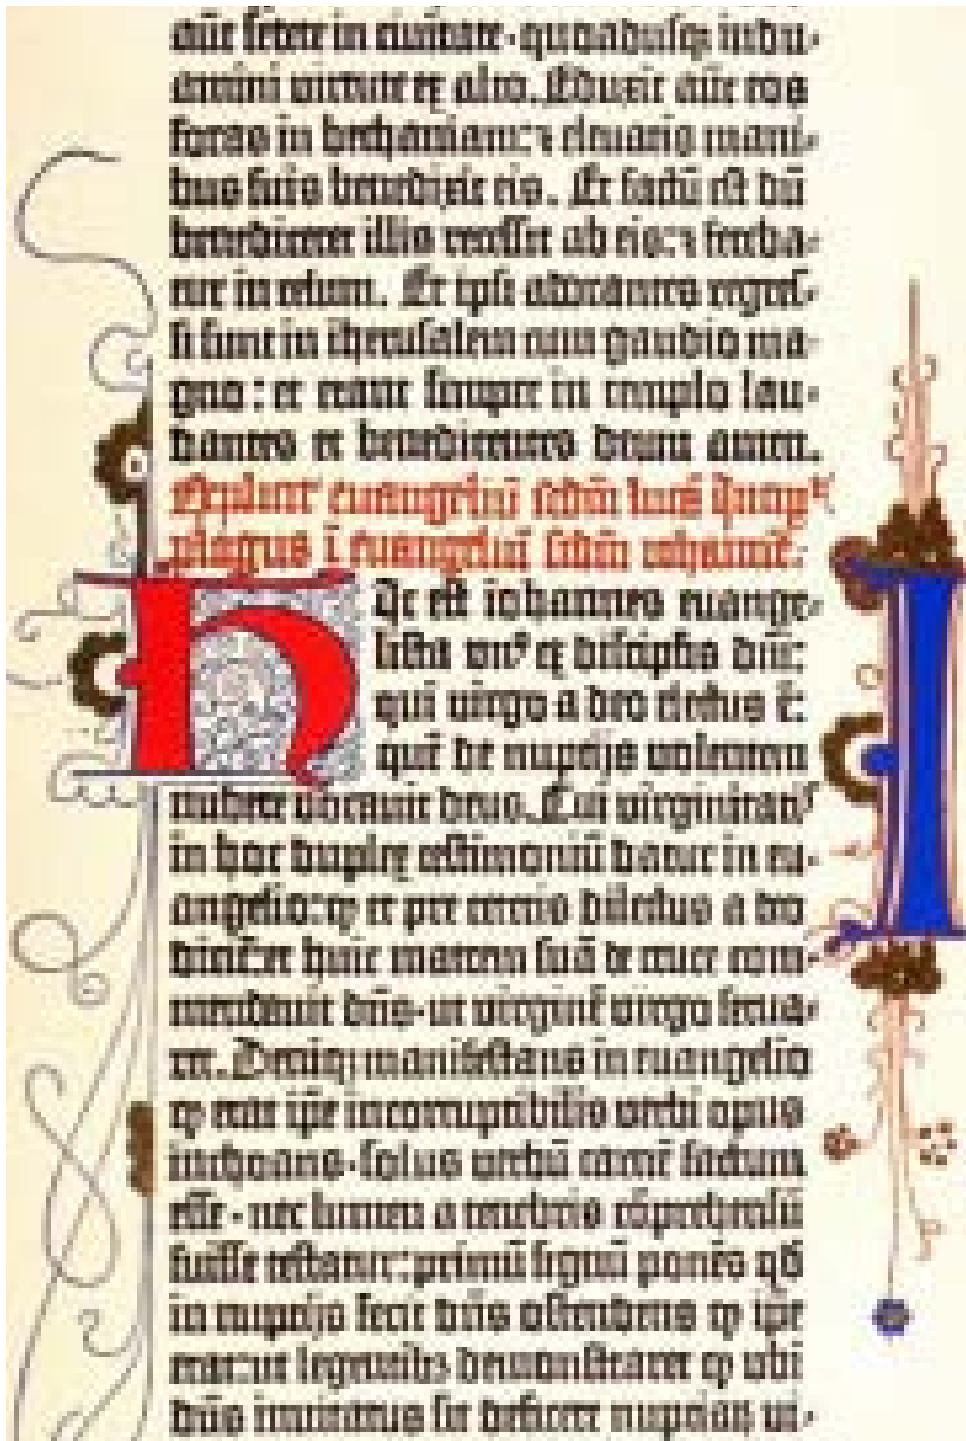 aūt sedete in civitate · quoadusq; indu-
amini virtute ex alto. Eduxit aūt eos
foras in bethaniam: ⁊ elevatis mani-
bus suis benedixit eis. Et factū est dū
benediceret illis recessit ab eis: ⁊ fereba-
tur in celum. Et ipsi adorantes regres-
si sunt in iherusalem cum gaudio ma-
gno: et erant semper in templo lau-
dantes et benedicentes deum amen.
Explicit euangeliū scdm lucā
euangeliū scdm iohannē.
Hic est iohannes euange-
lista unꝰ ex discipulis dn̄i:
qui virgo a deo electus ē:
quē de nuptijs volentem
nubere vocavit deus. Cui virginitatꝭ
in hoc duplex testimoniū datur in eu-
angelio: ꝙ et pre ceteris dilectus a deo
dicit̄: et huic matrem suā de cruce com-
mendavit dn̄s · ut virginē virgo serva-
ret. Deniq; manifestans in euangelio
ꝙ erat ip̄e incorruptibilis verbi opus
inchoans · solus verbū carnē factum
esse · nec lumen a tenebris cōprehensū
fuisse testatur: primū signū ponēs qd̄
in nuptijs fecit dn̄s ostendens ꝙ ip̄e
erat: ut legentibꝫ demonstraret ꝙ ubi
dn̄s invitatus sit deficere nuptiaꝝ vi-
I